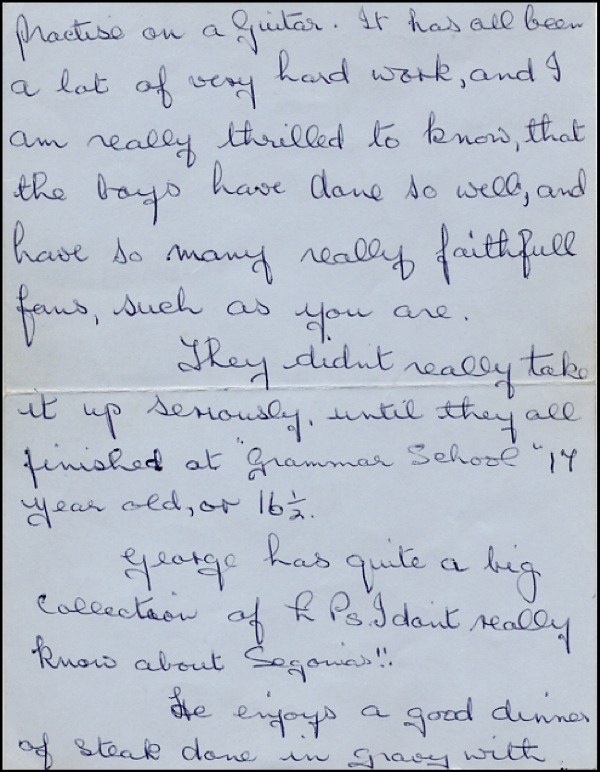 practise on a Guitar. It has all been
a lot of very hard work, and I
am really thrilled to know, that
the boys have done so well, and
have so many really faithfull
fans, such as you are.
They didn't really take
it up seriously, until they all
finished at "Grammar School" 17
year old, or 16 ½.
George has quite a big
collection of L Ps. I don't really
know about Segovias!!.
He enjoys a good dinner
of steak done in gravy with